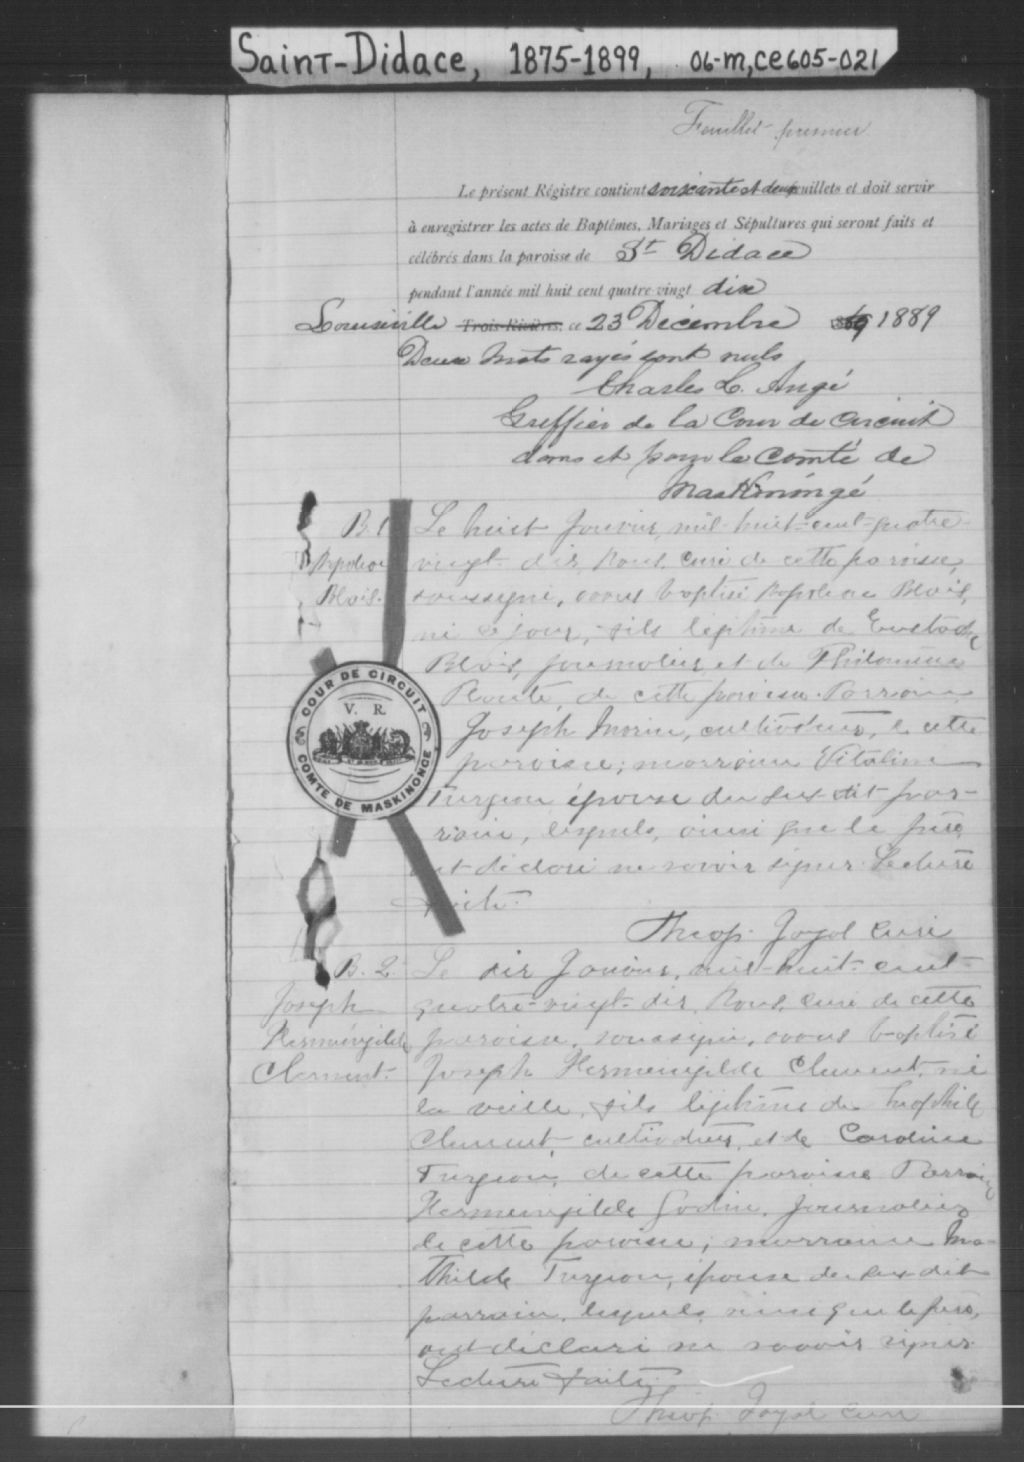 Saint-Didace, 1875-1899, 06-m,ce605-021
Feuillet premier
Le présent Régistre contient soixante et deux feuillets et doit servir
à enregistrer les actes de Baptêmes, Mariages et Sépultures qui seront faits et
célébrés dans la paroisse de St Didace
pendant l'année mil huit cent quatre-vingt dix
Louiseville Trois-Rivières, ce 23 Décembre 1889
Deux mots rayés sont nuls
Charles L. Angé
Greffier de la Cour de Circuit
dans et pour le Comté de
Maskinongé
B. 1
Napoléon
Blais.
Le huit Janvier, mil-huit-cent-quatre-
vingt-dix, Nous, curé de cette paroisse,
soussigné, avons baptisé Napoléon Blais,
né ce jour, fils légitime de Eustache
Blais, journalier, et de Philomène
de cette paroisse. Parrain
Joseph Morin, cultivateur, de cette
paroisse; marraine Vitaline
Turgeon épouse du sus dit par-
rain, lesquels, ainsi que le père,
ont déclaré ne savoir signer. Lecture
faite.
Théop. Joyal curé
COUR DE CIRCUIT
V. R.
COMTE DE MASKINONGE
B. 2.
Joseph
Herménégilde
Clément.
Le dix Janvier, mil-huit-cent-
quatre-vingt-dix, Nous, curé de cette
paroisse, soussigné, avons baptisé
Joseph Herménégilde Clément, né
la veille, fils légitime de Théophile
Clément, cultivateur, et de Caroline
Turgeon, de cette paroisse. Parrain
Herménégilde Godin, journalier
de cette paroisse; marraine Ma-
thilde Turgeon, épouse du sus dit
parrain, lesquels, ainsi que le père,
ont déclaré ne savoir signer.
Lecture faite.
Théop. Joyal curé